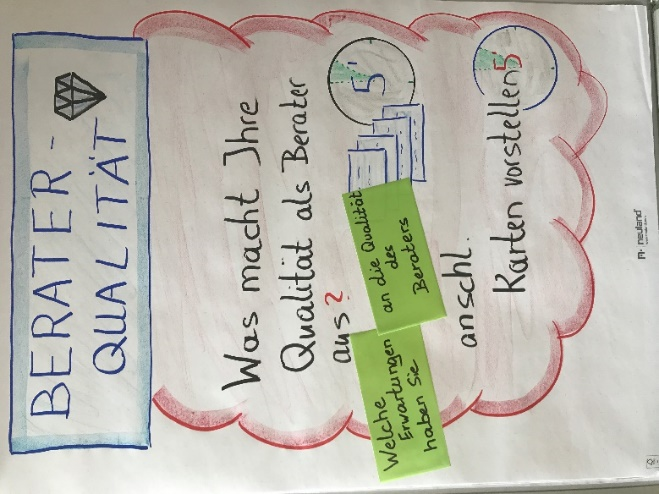 BERATER-
QUALITÄT
Was macht Ihre
Qualität als Berater
aus?
5'
Welche
Erwartungen
haben Sie
an die Qualität
des
Beraters
anschl.
Karten vorstellen
5'
neuland